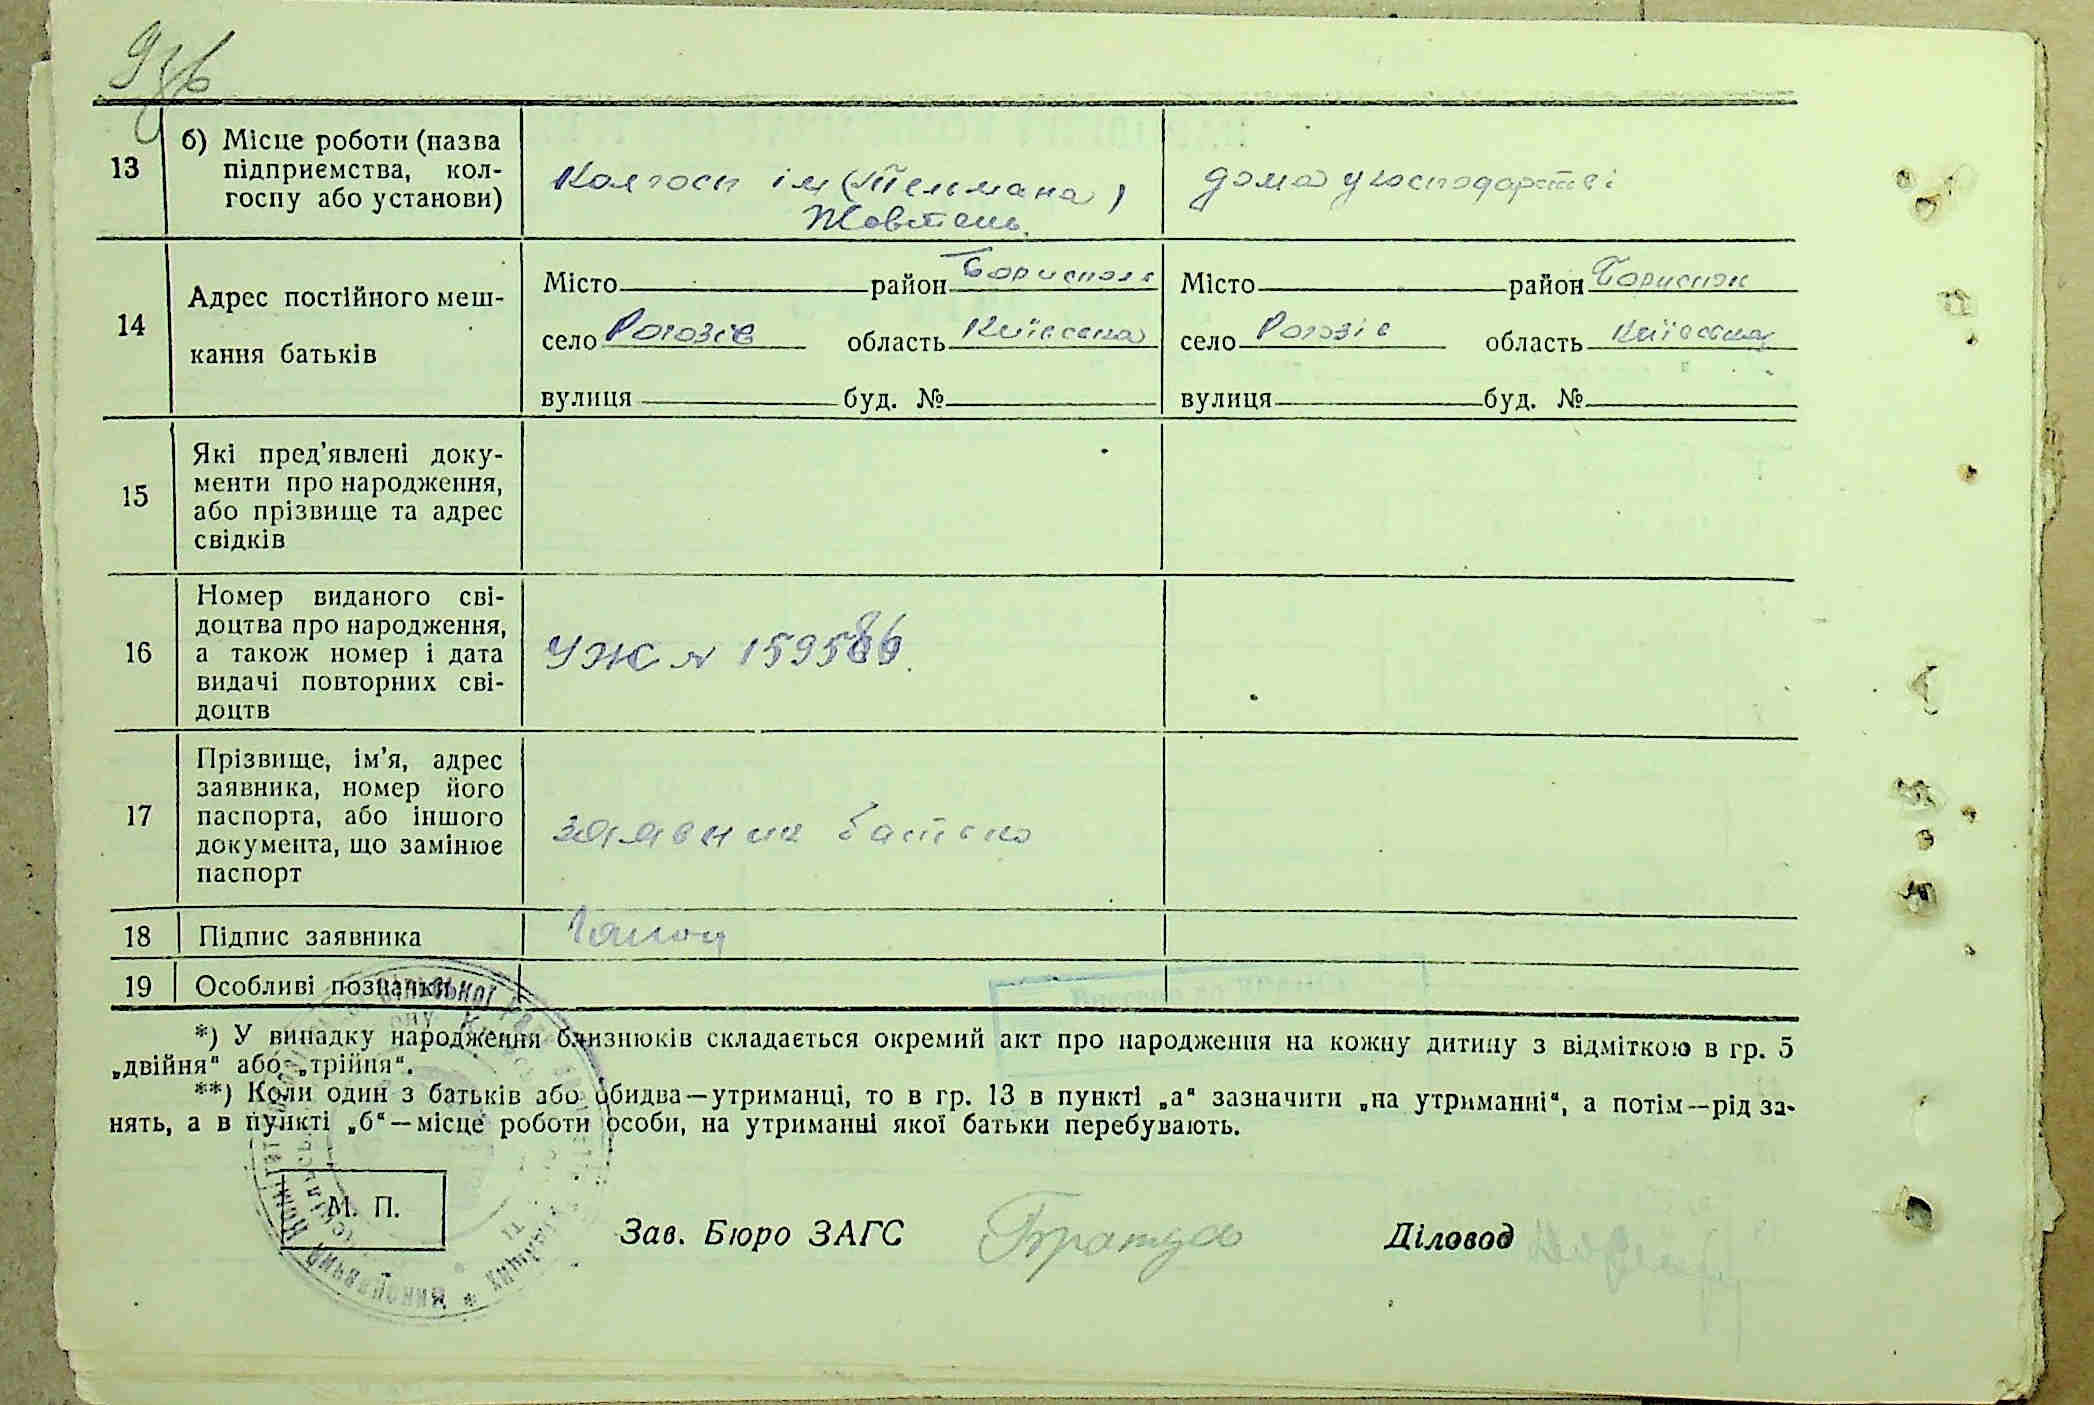 9зв
13
б) Місце роботи (назва
підприємства, кол-
госпу або установи)
Колгосп ім (Тельмана)
Жовтень
дома у господарстві
14
Адрес постійного меш-
кання батьків
Місто район Бориспол
село Рогозів область Київська
вулиця буд. №
Місто район Бориспол
село Рогозів область Київська
вулиця буд. №
15
Які пред'явлені доку-
менти про народження,
або прізвище та адрес
свідків
16
Номер виданого сві-
доцтва про народження,
а також номер і дата
видачі повторних сві-
доцтв
УЖ № 159586
17
Прізвище, ім'я, адрес
заявника, номер його
паспорта, або іншого
документа, що замінює
паспорт
заявник батько
18
Підпис заявника
19
Особливі позначки
*) У випадку народження близнюків складається окремий акт про народження на кожну дитину з відміткою в гр. 5
„двійня“ або „трійня“.
**) Коли один з батьків або обидва—утриманці, то в гр. 13 в пункті „а“ зазначити „на утриманні“, а потім—рід за-
нять, а в пункті „б“—місце роботи особи, на утриманні якої батьки перебувають.
М. П.
Зав. Бюро ЗАГС Братусь Діловод